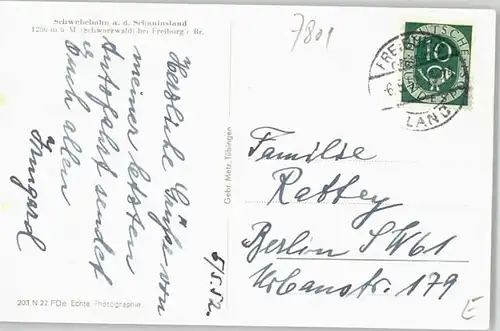 Schwebebahn a. d. Schauinsland
1286 m ü. M. (Schwarzwald) bei Freiburg i. Br.
Herzliche Grüße von
meiner letzten
Autofahrt sendet
Euch allen
Irmgard
5/5.52.
Gebr. Metz, Tübingen
203 N 22 FDe Echte Photographie
7801
DEUTSCHE
10
Familie
Rattey
Berlin SW 61
Urbanstr. 179
E